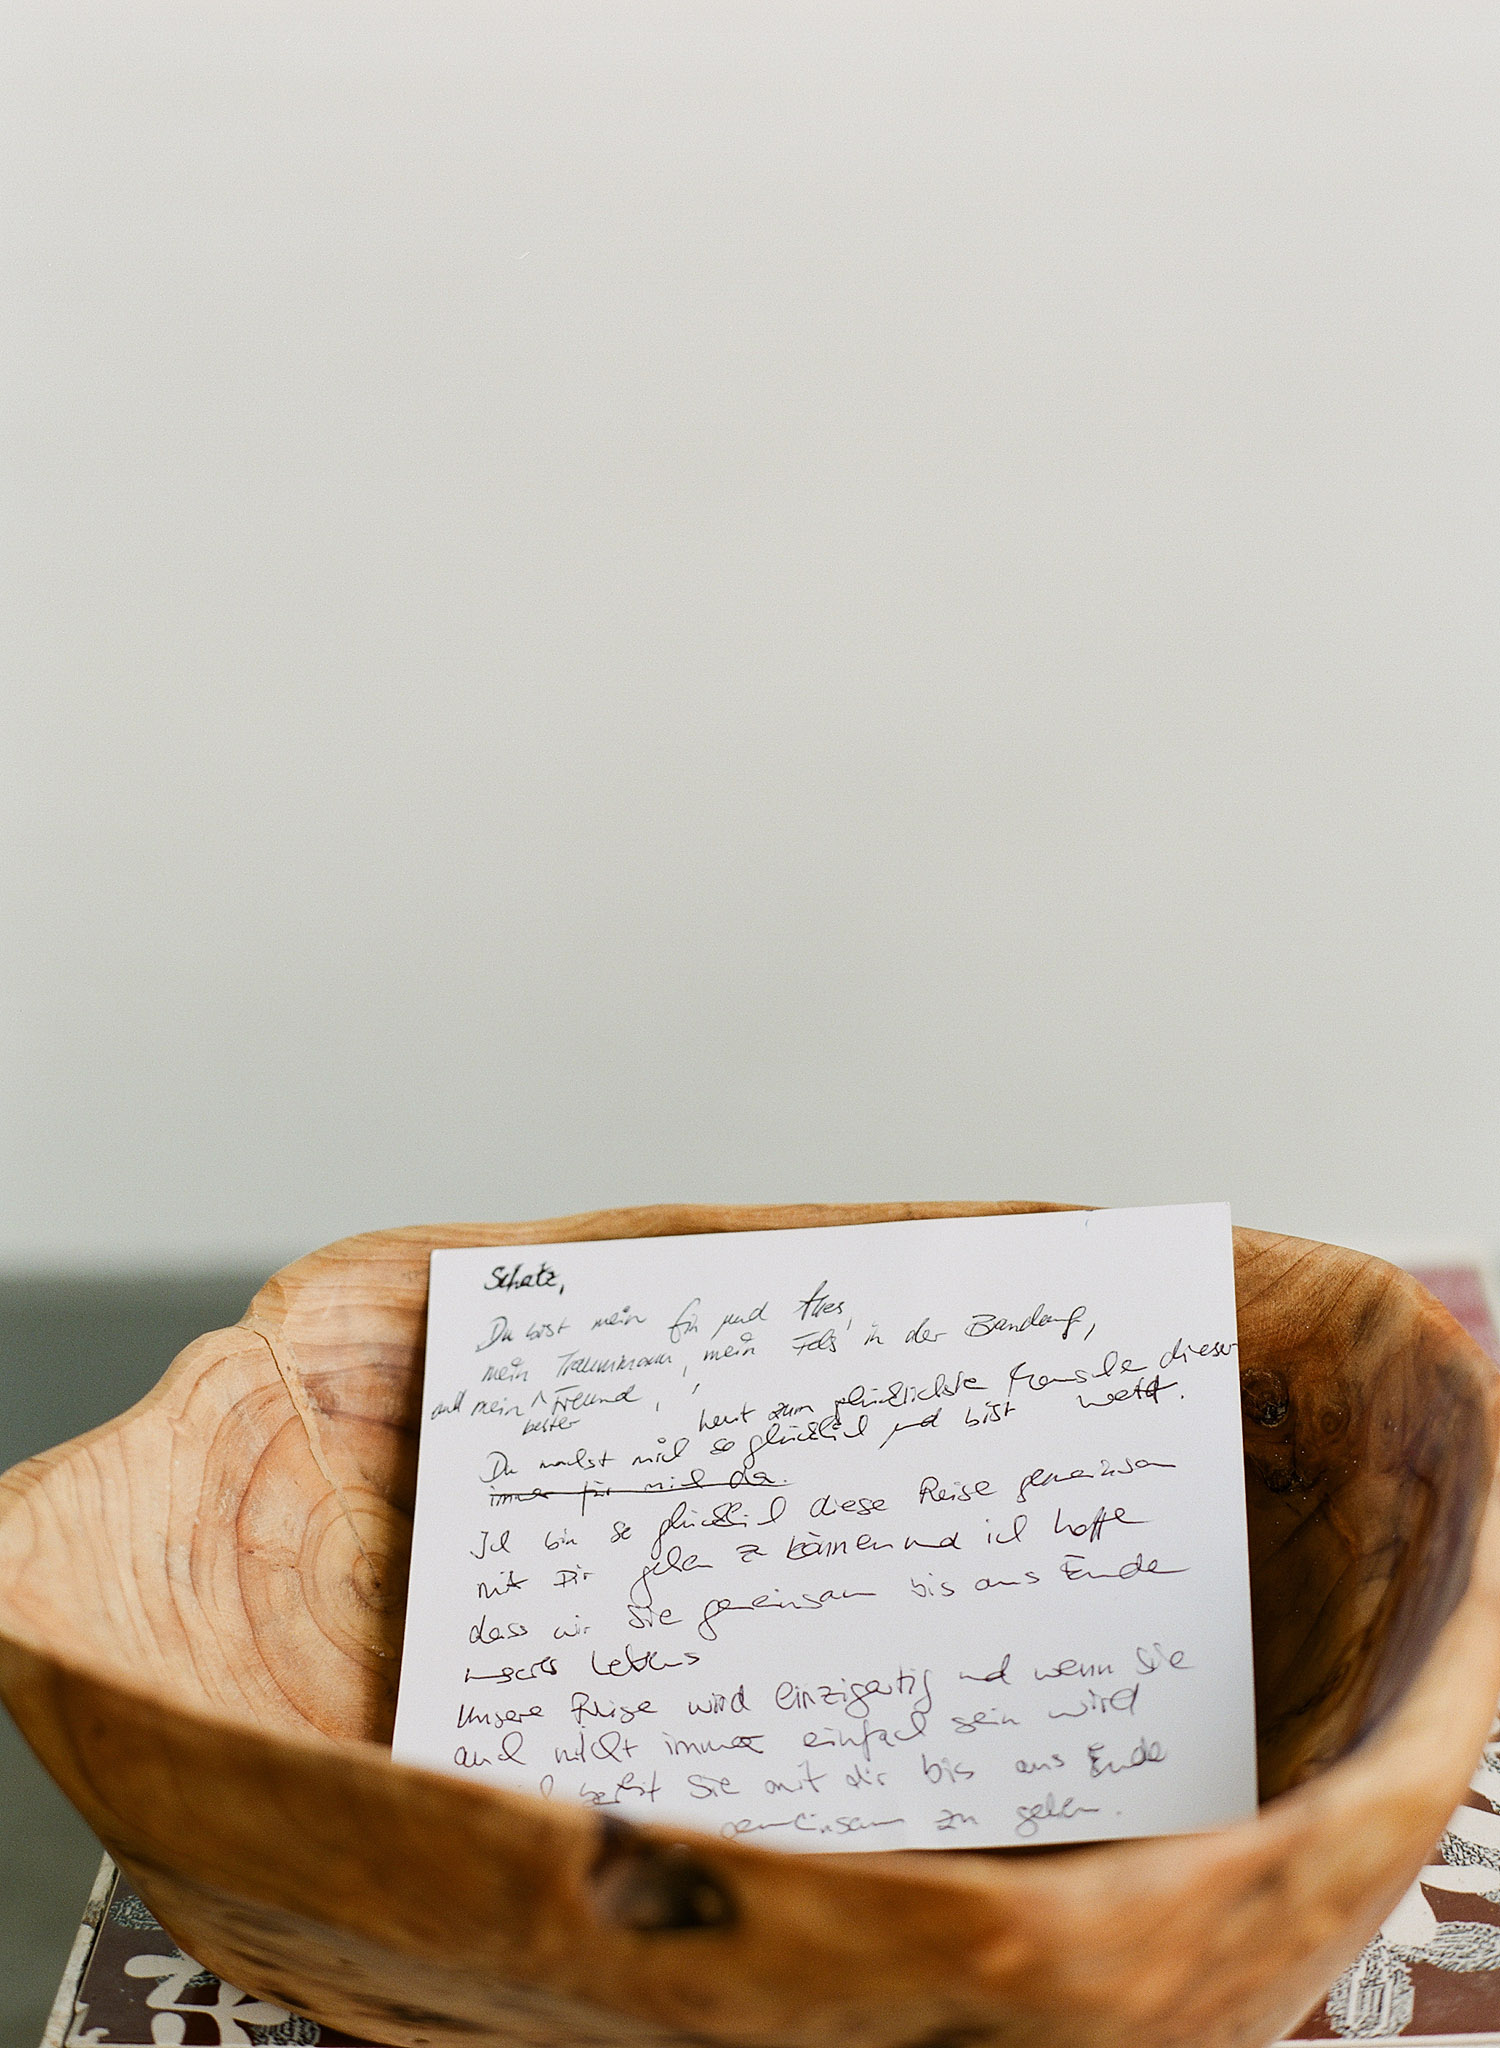 Schatz,
Du bist mein Ein und Alles,
mein Traummann, mein Fels in der Brandung,
und mein ^ Freund,
bester
heut zum glücklichste Mensche dieser
Du machst mich so glücklich und bist Welt.
immer für mich da.
Ich bin so glücklich diese Reise gemeinsam
mit Dir gehen zu können und ich hoffe
dass wir Sie gemeinsam bis ans Ende
unseres Lebens
Unsere Reise wird einzigartig und wenn Sie
auch nicht immer einfach sein wird
Sie mit dir bis ans Ende
gemeinsam zu gehen.